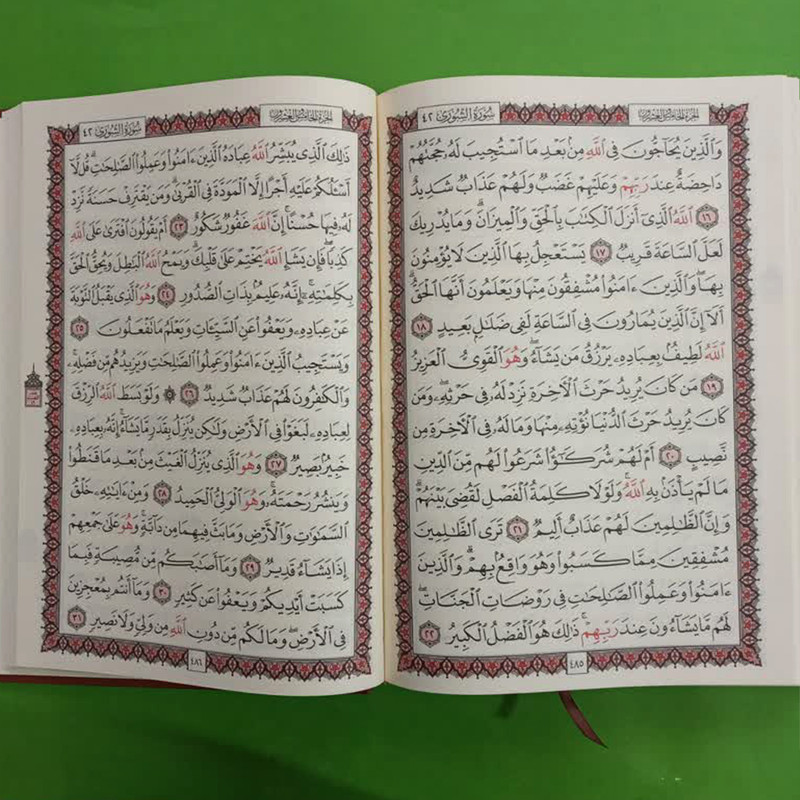 الجزء الخامس والعشرون
سورة الشورى ٤٢
وَالَّذِينَ يُحَاجُّونَ فِي اللَّهِ مِنۢ بَعْدِ مَا اسْتُجِيبَ لَهُۥ حُجَّتُهُمْ
دَاحِضَةٌ عِندَ رَبِّهِمْ وَعَلَيْهِمْ غَضَبٌ وَلَهُمْ عَذَابٌ شَدِيدٌ
١٦ اللَّهُ الَّذِي أَنزَلَ الْكِتَٰبَ بِالْحَقِّ وَالْمِيزَانَ ۗ وَمَا يُدْرِيكَ
لَعَلَّ السَّاعَةَ قَرِيبٌ ١٧ يَسْتَعْجِلُ بِهَا الَّذِينَ لَا يُؤْمِنُونَ
بِهَا ۖ وَالَّذِينَ ءَامَنُوا مُشْفِقُونَ مِنْهَا وَيَعْلَمُونَ أَنَّهَا الْحَقُّ ۗ
أَلَا إِنَّ الَّذِينَ يُمَارُونَ فِي السَّاعَةِ لَفِي ضَلَٰلٍۭ بَعِيدٍ ١٨
اللَّهُ لَطِيفٌۢ بِعِبَادِهِۦ يَرْزُقُ مَن يَشَآءُ ۖ وَهُوَ الْقَوِيُّ الْعَزِيزُ
١٩ مَن كَانَ يُرِيدُ حَرْثَ الْءَاخِرَةِ نَزِدْ لَهُۥ فِي حَرْثِهِۦ ۖ وَمَن
كَانَ يُرِيدُ حَرْثَ الدُّنْيَا نُؤْتِهِۦ مِنْهَا وَمَا لَهُۥ فِي الْءَاخِرَةِ مِن
نَّصِيبٍ ٢٠ أَمْ لَهُمْ شُرَكَٰٓؤُا شَرَعُوا لَهُم مِّنَ الدِّينِ
مَا لَمْ يَأْذَنۢ بِهِ اللَّهُ ۚ وَلَوْلَا كَلِمَةُ الْفَصْلِ لَقُضِيَ بَيْنَهُمْ ۗ
وَإِنَّ الظَّٰلِمِينَ لَهُمْ عَذَابٌ أَلِيمٌ ٢١ تَرَى الظَّٰلِمِينَ
مُشْفِقِينَ مِمَّا كَسَبُوا وَهُوَ وَاقِعٌۢ بِهِمْ ۗ وَالَّذِينَ
ءَامَنُوا وَعَمِلُوا الصَّٰلِحَٰتِ فِي رَوْضَاتِ الْجَنَّاتِ ۖ
لَهُم مَّا يَشَآءُونَ عِندَ رَبِّهِمْ ۚ ذَٰلِكَ هُوَ الْفَضْلُ الْكَبِيرُ ٢٢
٤٨٥
الجزء الخامس والعشرون
سورة الشورى ٤٢
ذَٰلِكَ الَّذِي يُبَشِّرُ اللَّهُ عِبَادَهُ الَّذِينَ ءَامَنُوا وَعَمِلُوا الصَّٰلِحَٰتِ ۗ قُل لَّآ
أَسْـَٔلُكُمْ عَلَيْهِ أَجْرًا إِلَّا الْمَوَدَّةَ فِي الْقُرْبَىٰ ۗ وَمَن يَقْتَرِفْ حَسَنَةً نَّزِدْ
لَهُۥ فِيهَا حُسْنًا ۚ إِنَّ اللَّهَ غَفُورٌ شَكُورٌ ٢٣ أَمْ يَقُولُونَ افْتَرَىٰ عَلَى اللَّهِ
كَذِبًا ۖ فَإِن يَشَإِ اللَّهُ يَخْتِمْ عَلَىٰ قَلْبِكَ ۗ وَيَمْحُ اللَّهُ الْبَٰطِلَ وَيُحِقُّ الْحَقَّ
بِكَلِمَٰتِهِۦٓ ۚ إِنَّهُۥ عَلِيمٌۢ بِذَاتِ الصُّدُورِ ٢٤ وَهُوَ الَّذِي يَقْبَلُ التَّوْبَةَ
عَنْ عِبَادِهِۦ وَيَعْفُوا عَنِ السَّيِّـَٔاتِ وَيَعْلَمُ مَا تَفْعَلُونَ ٢٥
وَيَسْتَجِيبُ الَّذِينَ ءَامَنُوا وَعَمِلُوا الصَّٰلِحَٰتِ وَيَزِيدُهُم مِّن فَضْلِهِۦ ۚ
وَالْكَٰفِرُونَ لَهُمْ عَذَابٌ شَدِيدٌ ٢٦ ۞ وَلَوْ بَسَطَ اللَّهُ الرِّزْقَ
لِعِبَادِهِۦ لَبَغَوْا فِي الْأَرْضِ وَلَٰكِن يُنَزِّلُ بِقَدَرٍ مَّا يَشَآءُ ۚ إِنَّهُۥ بِعِبَادِهِۦ
خَبِيرٌۢ بَصِيرٌ ٢٧ وَهُوَ الَّذِي يُنَزِّلُ الْغَيْثَ مِنۢ بَعْدِ مَا قَنَطُوا
وَيَنشُرُ رَحْمَتَهُۥ ۚ وَهُوَ الْوَلِيُّ الْحَمِيدُ ٢٨ وَمِنْ ءَايَٰتِهِۦ خَلْقُ
السَّمَٰوَٰتِ وَالْأَرْضِ وَمَا بَثَّ فِيهِمَا مِن دَآبَّةٍ ۚ وَهُوَ عَلَىٰ جَمْعِهِمْ
إِذَا يَشَآءُ قَدِيرٌ ٢٩ وَمَآ أَصَٰبَكُم مِّن مُّصِيبَةٍ فَبِمَا
كَسَبَتْ أَيْدِيكُمْ وَيَعْفُوا عَن كَثِيرٍ ٣٠ وَمَآ أَنتُم بِمُعْجِزِينَ
فِي الْأَرْضِ ۖ وَمَا لَكُم مِّن دُونِ اللَّهِ مِن وَلِيٍّ وَلَا نَصِيرٍ ٣١
٤٨٦